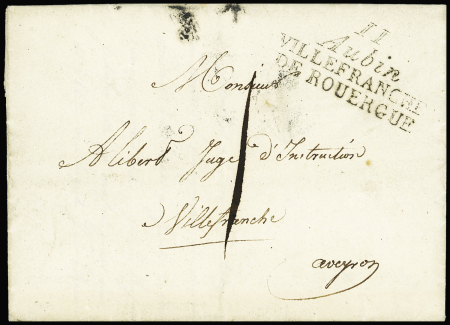 11
Aubin
VILLEFRANCHE
DE ROUERGUE
Monsieur
Alibert Juge d'Instruction
a Villefranche
aveyron
1